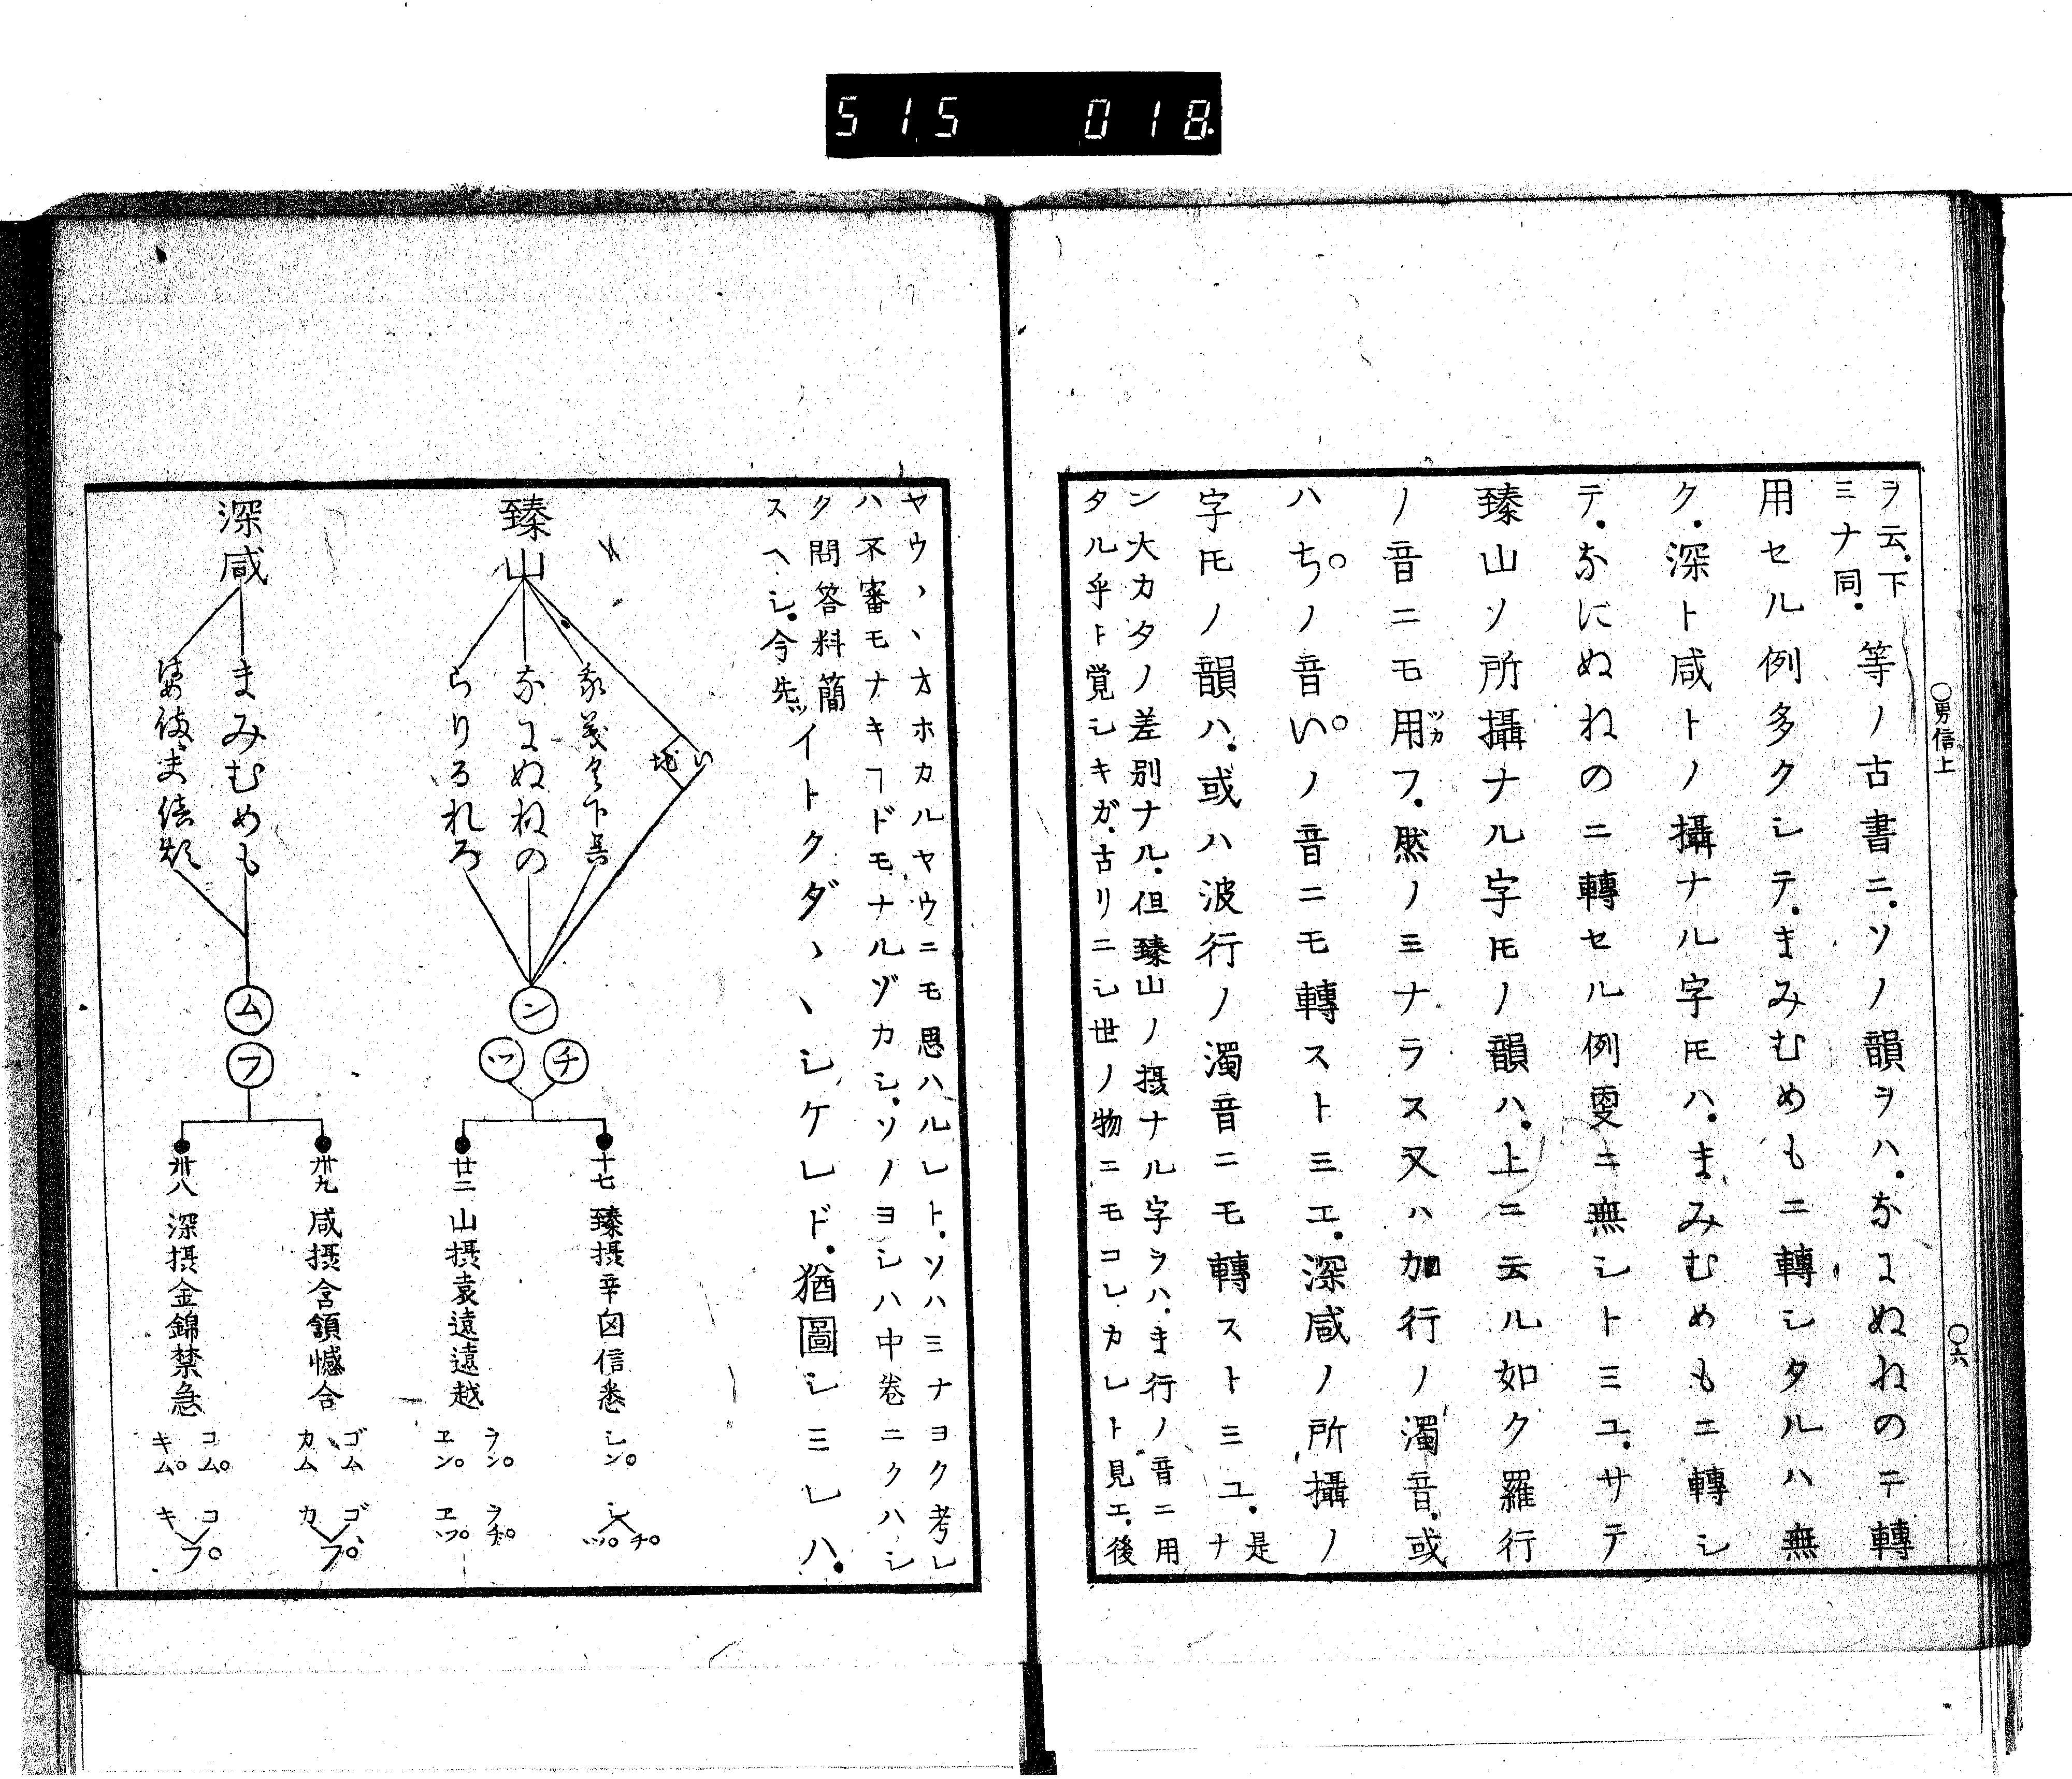 515 018
○男信上
○六
ヲ云。下
ミナ同。
等ノ古書ニ。ソノ韻ヲハ。なにぬねのニ轉
用セル例多クシテ。まみむめもニ轉シタルハ無
ク。深ト咸トノ攝ナル字𪜈ハ。まみむめもニ轉シ
テ。なにぬねのニ轉セル例更ニ無シトミユ。サテ
臻山ソ所攝ナル字𪜈ノ韻ハ。上ニ云ル如ク羅行
ノ音ニモ用フ。然ノミナラス又ハ加行ノ濁音。或
ツカ
ハち。ノ音い。ノ音ニモ轉ストミエ。深咸ノ所攝ノ
字𪜈ノ韻ハ。或ハ波行ノ濁音ニモ轉ストミユ。
是
ナ
ン大カタノ差別ナル。但臻山ノ摂ナル字ヲハ。ま行ノ音ニ用
タル乎ト覚シキガ。古リニシ世ノ物ニモコレカレト見エ。後
ヤウヽヽオホカルヤウニモ思ハルレト。ソハミナヨク考レ
ハ不審モナキヿドモナルゾカシ。ソノヨシハ中巻ニクハシ
ク問答料簡
スヘシ。今先ツ
イトクダヽヽシケレド。猶圖シミレハ。
臻山
い
地
なにぬねの
らりるれろ
ン
チ
ツ
十七 臻摂 辛囟信悉
シン。
シ
チ。
ツ。
廿二 山摂 袁遠遠越
ヲン。
ヱン。
ヲチ。
ヱツ。
深咸
まみむめも
ム
フ
卅九 咸摂 含頷憾合
ゴム
カム
ゴ
カ
フ。
卅八 深摂 金錦禁急
コム。
キム。
コ
キ
フ。